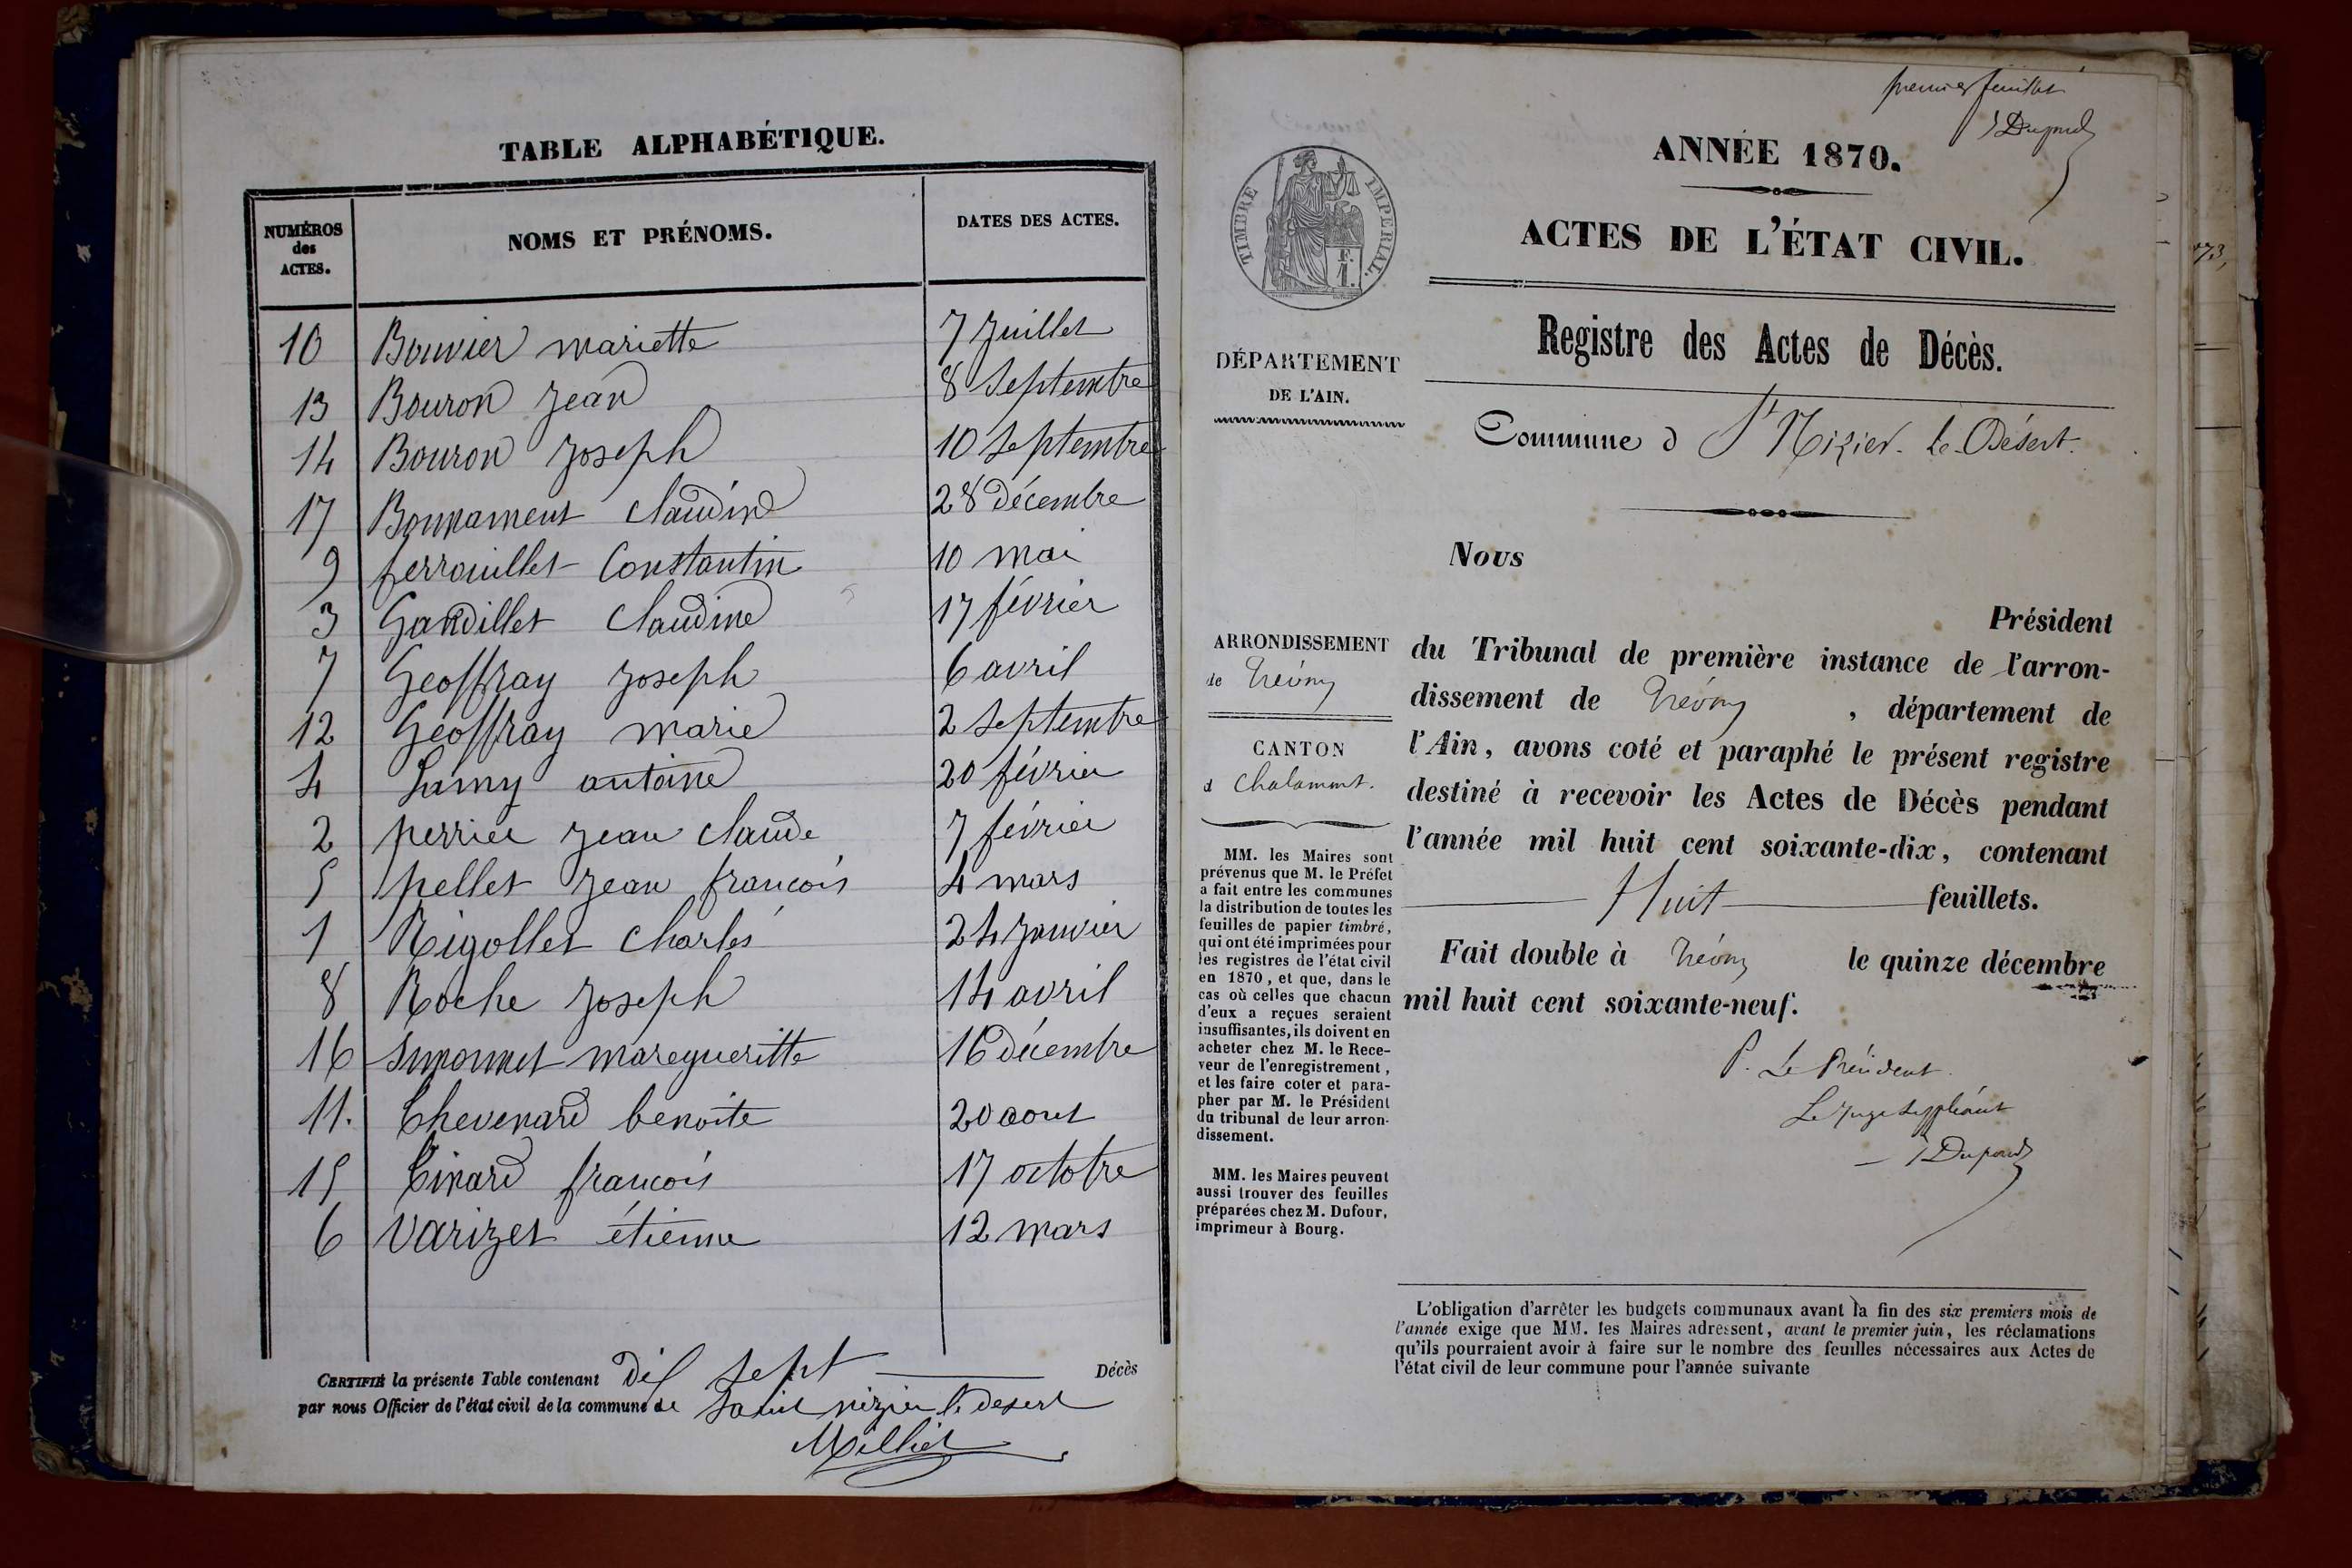 TABLE ALPHABÉTIQUE.
NUMÉROS des ACTES. NOMS ET PRÉNOMS. DATES DES ACTES.
10 Bouvier mariette 7 Juillet
13 Bouron Jean 8 Septembre
14 Bouron Joseph 10 Septembre
17 Bonnament Claudine 28 décembre
9 ferrouillet Constantin 10 mai
3 Gandillet Claudine 17 février
7 Geoffray Joseph 6 avril
12 Geoffray marie 2 Septembre
4 Lamy antoine 20 février
2 perrier Jean claude 7 février
5 pellet Jean françois 4 mars
1 Rigollet Charles 24 Janvier
8 Roche Joseph 14 avril
16 Simonnet maregueritte 16 décembre
11. Thevenard benoite 20 aout
15 Tinard françois 17 octobre
6 Varizet étienne 12 mars
CERTIFIÉ la présente Table contenant dix sept Décès
par nous Officier de l'état civil de la commune de Saint nizier le desert
Milliet
premier feuillet
Dupond
ANNÉE 1870.
ACTES DE L'ÉTAT CIVIL.
TIMBRE IMPERIAL.
F.
1.
Registre des Actes de Décès.
DÉPARTEMENT
DE L'AIN.
Commune d St Nizier-le-Désert.
Nous
Président
du Tribunal de première instance de l'arron-
dissement de Trévoux, département de
l'Ain, avons coté et paraphé le présent registre
destiné à recevoir les Actes de Décès pendant
l'année mil huit cent soixante-dix, contenant
Huit feuillets.
Fait double à Trévoux le quinze décembre
mil huit cent soixante-neuf.
P. Le Président.
Le Juge Suppléant
Dupond
ARRONDISSEMENT
de Trévoux
CANTON
d Chalamont.
MM. les Maires sont
prévenus que M. le Préfet
a fait entre les communes
la distribution de toutes les
feuilles de papier timbré,
qui ont été imprimées pour
les registres de l'état civil
en 1870, et que, dans le
cas où celles que chacun
d'eux a reçues seraient
insuffisantes, ils doivent en
acheter chez M. le Rece-
veur de l'enregistrement,
et les faire coter et para-
pher par M. le Président
du tribunal de leur arron-
dissement.
MM. les Maires peuvent
aussi trouver des feuilles
préparées chez M. Dufour,
imprimeur à Bourg.
L'obligation d'arrêter les budgets communaux avant la fin des six premiers mois de
l'année exige que MM. les Maires adressent, avant le premier juin, les réclamations
qu'ils pourraient avoir à faire sur le nombre des feuilles nécessaires aux Actes de
l'état civil de leur commune pour l'année suivante